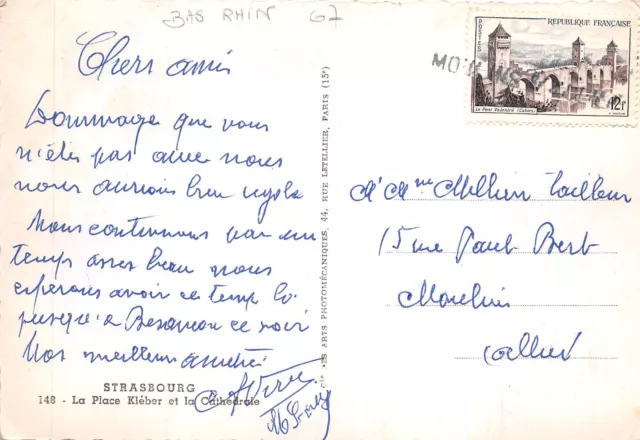 BAS RHIN 67
Chers amis
Dommage que vous
n'êtes pas avec nous
nous aurions bien rigolé
Nous continuons par un
temps assez beau nous
espérons avoir ce temps là
jusqu'a Besançon ce soir
Nos meilleurs amitiés
STRASBOURG
148 - La Place Kléber et la Cathédrale
Cie DES ARTS PHOTOMÉCANIQUES, 44, RUE LETELLIER, PARIS (15e)
POSTES
REPUBLIQUE FRANÇAISE
12F
Le Pont Valentré (Cahors)
MOULINS
M Mme Tailleur
15 rue Paul Bert
Moulins
Allier